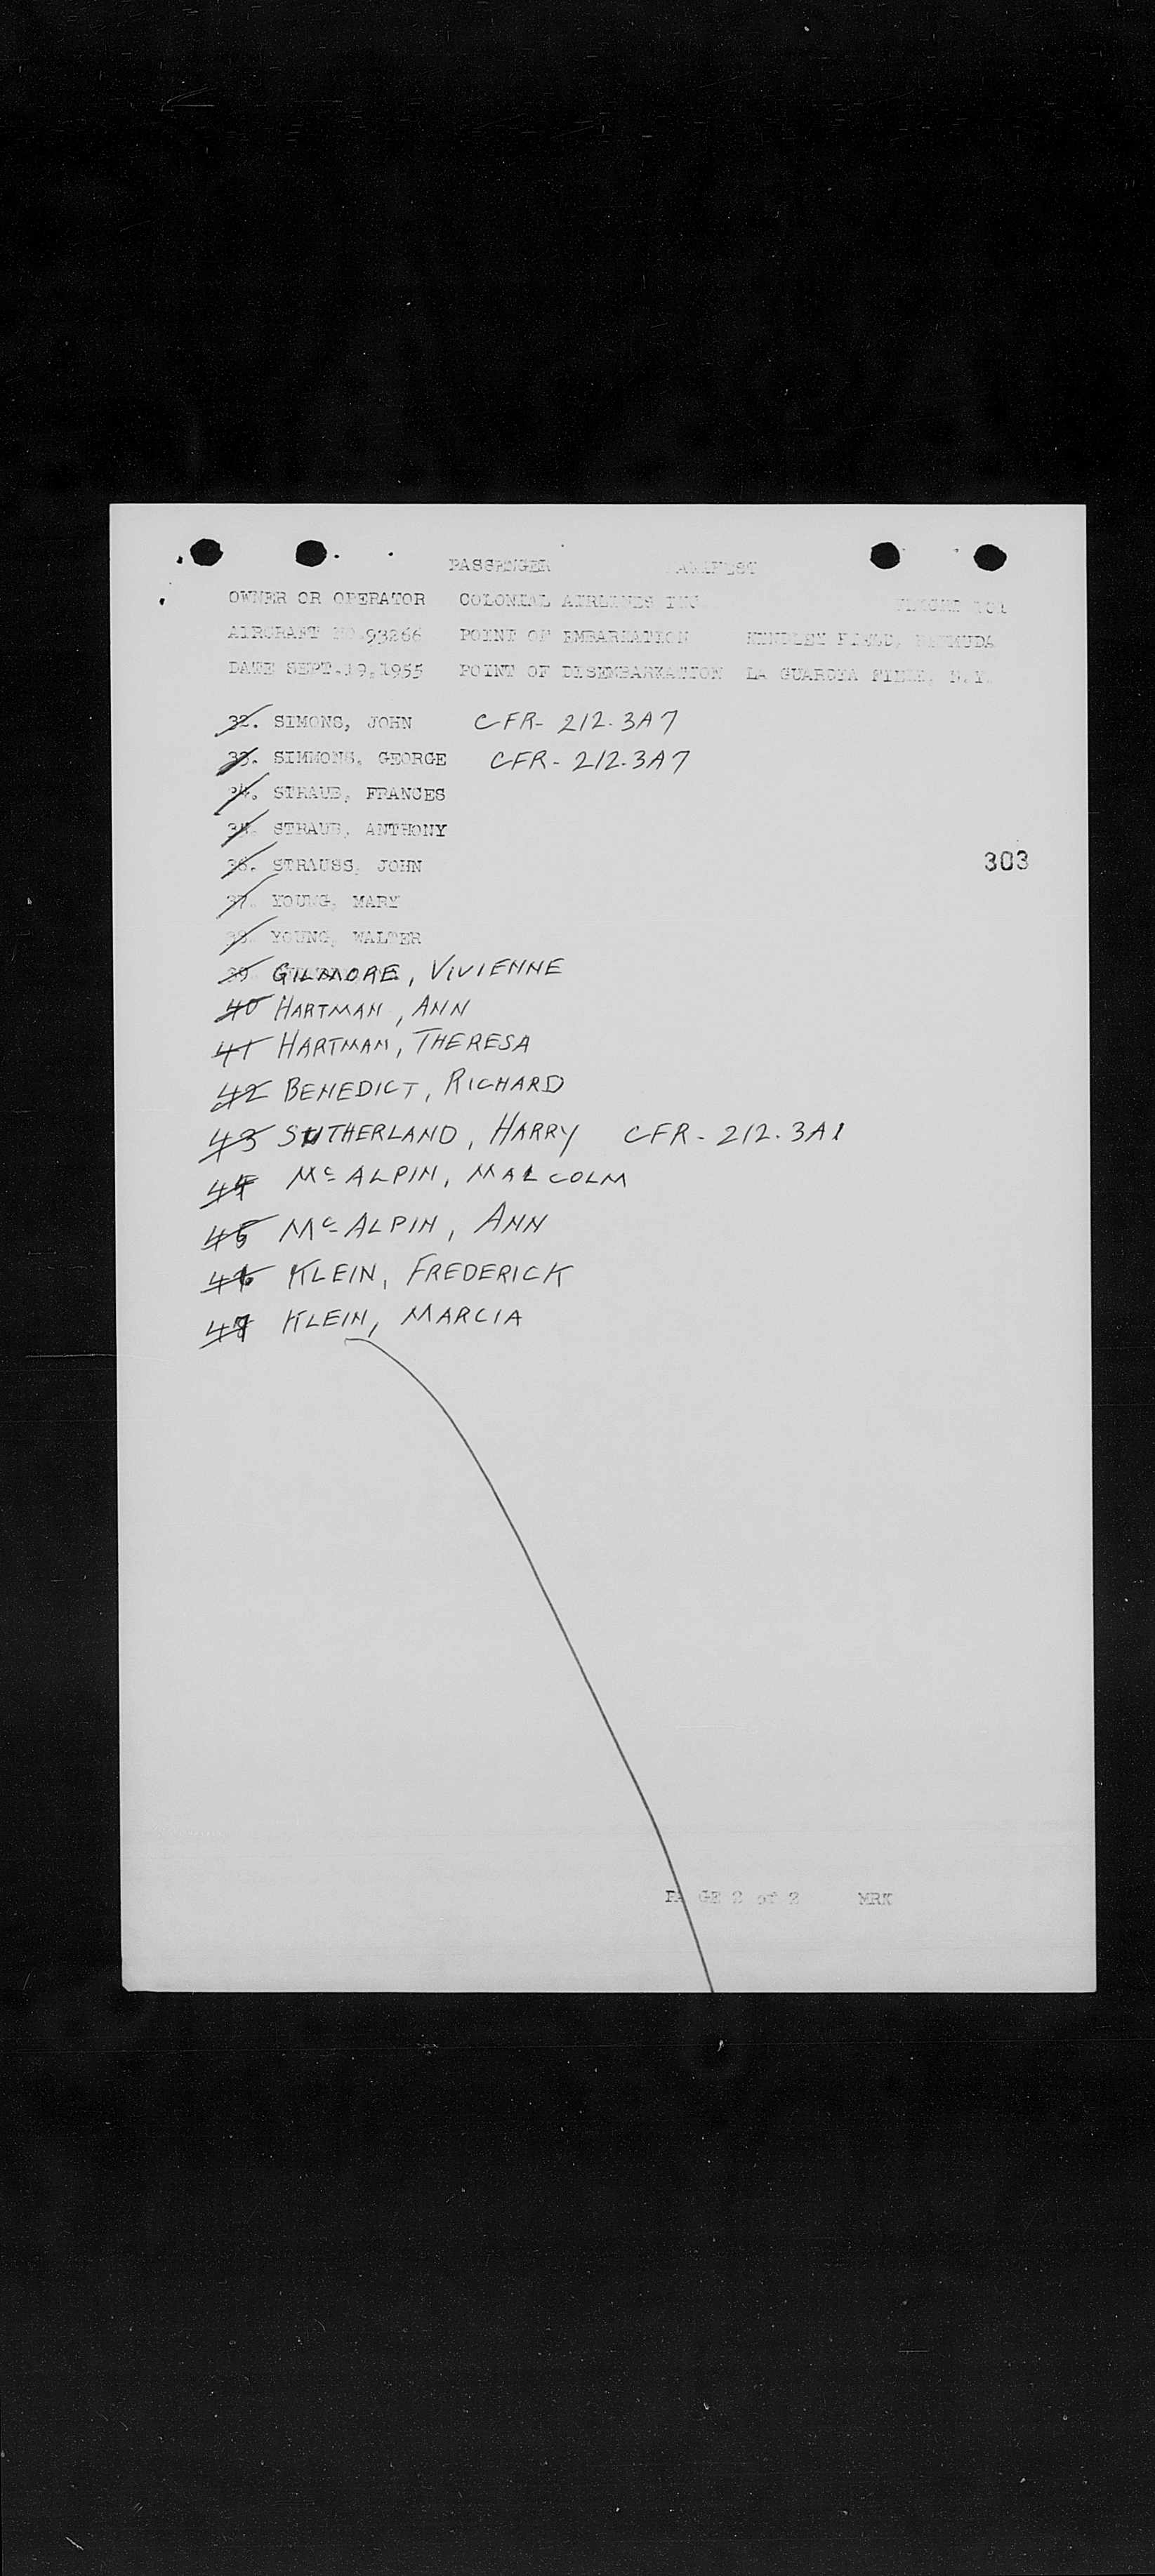 PASSENGER MANIFEST
OWNER OR OPERATOR COLONIAL AIRLINES INC FLIGHT
AIRCRAFT NO.93266 POINT OF EMBARKATION KINDLEY FIELD, BERMUDA
DATE SEPT.19,1955 POINT OF DISEMBARKATION LA GUARDIA FIELD, N.Y.
32. SIMONS, JOHN CFR- 212.3A7
33. SIMMONS, GEORGE CFR- 212.3A7
34. STRAUB, FRANCES
35. STRAUB, ANTHONY
303
36. STRAUSS, JOHN
37. YOUNG, MARY
38. YOUNG, WALTER
39 GILMORE, VIVIENNE
40 HARTMAN, ANN
41 HARTMAN, THERESA
42 BENEDICT, RICHARD
43 SUTHERLAND, HARRY CFR- 212.3A1
44 McALPIN, MALCOLM
45 McALPIN, ANN
46 KLEIN, FREDERICK
47 KLEIN, MARCIA
PAGE 2 of 2 MRK